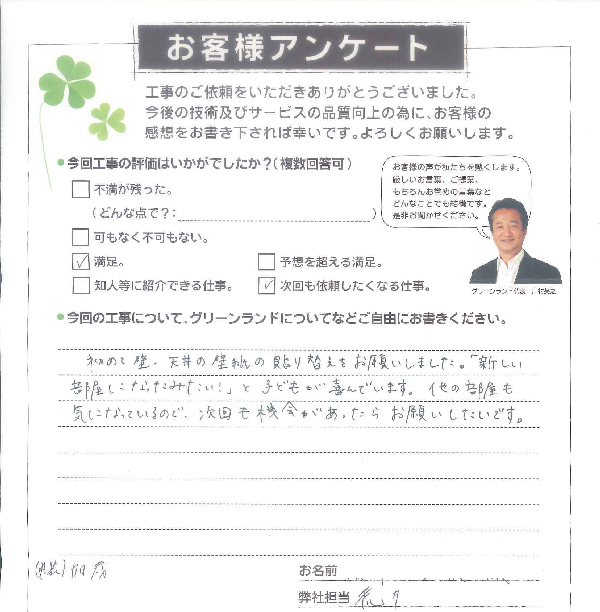 お客様アンケート
工事のご依頼をいただきありがとうございました。
今後の技術及びサービスの品質向上の為に、お客様の
感想をお書き下されば幸いです。よろしくお願いします。
●今回工事の評価はいかがでしたか？（複数回答可）
不満が残った。
（どんな点で？：　）
可もなく不可もない。
☑満足。
予想を超える満足。
知人等に紹介できる仕事。
☑次回も依頼したくなる仕事。
お客様の声が私たちを熱くします。
厳しいお言葉、ご提案、
もちろんお誉めの言葉など
どんなことでも結構です。
是非お聞かせください。
グリーンランド代表
●今回の工事について、グリーンランドについてなどご自由にお書きください。
初めて壁、天井の壁紙の貼り替えをお願いしました。「新しい
部屋になったみたい！」と子どもが喜んでいます。他の部屋も
気になっているので、次回も機会があったらお願いしたいです。
お名前
弊社担当